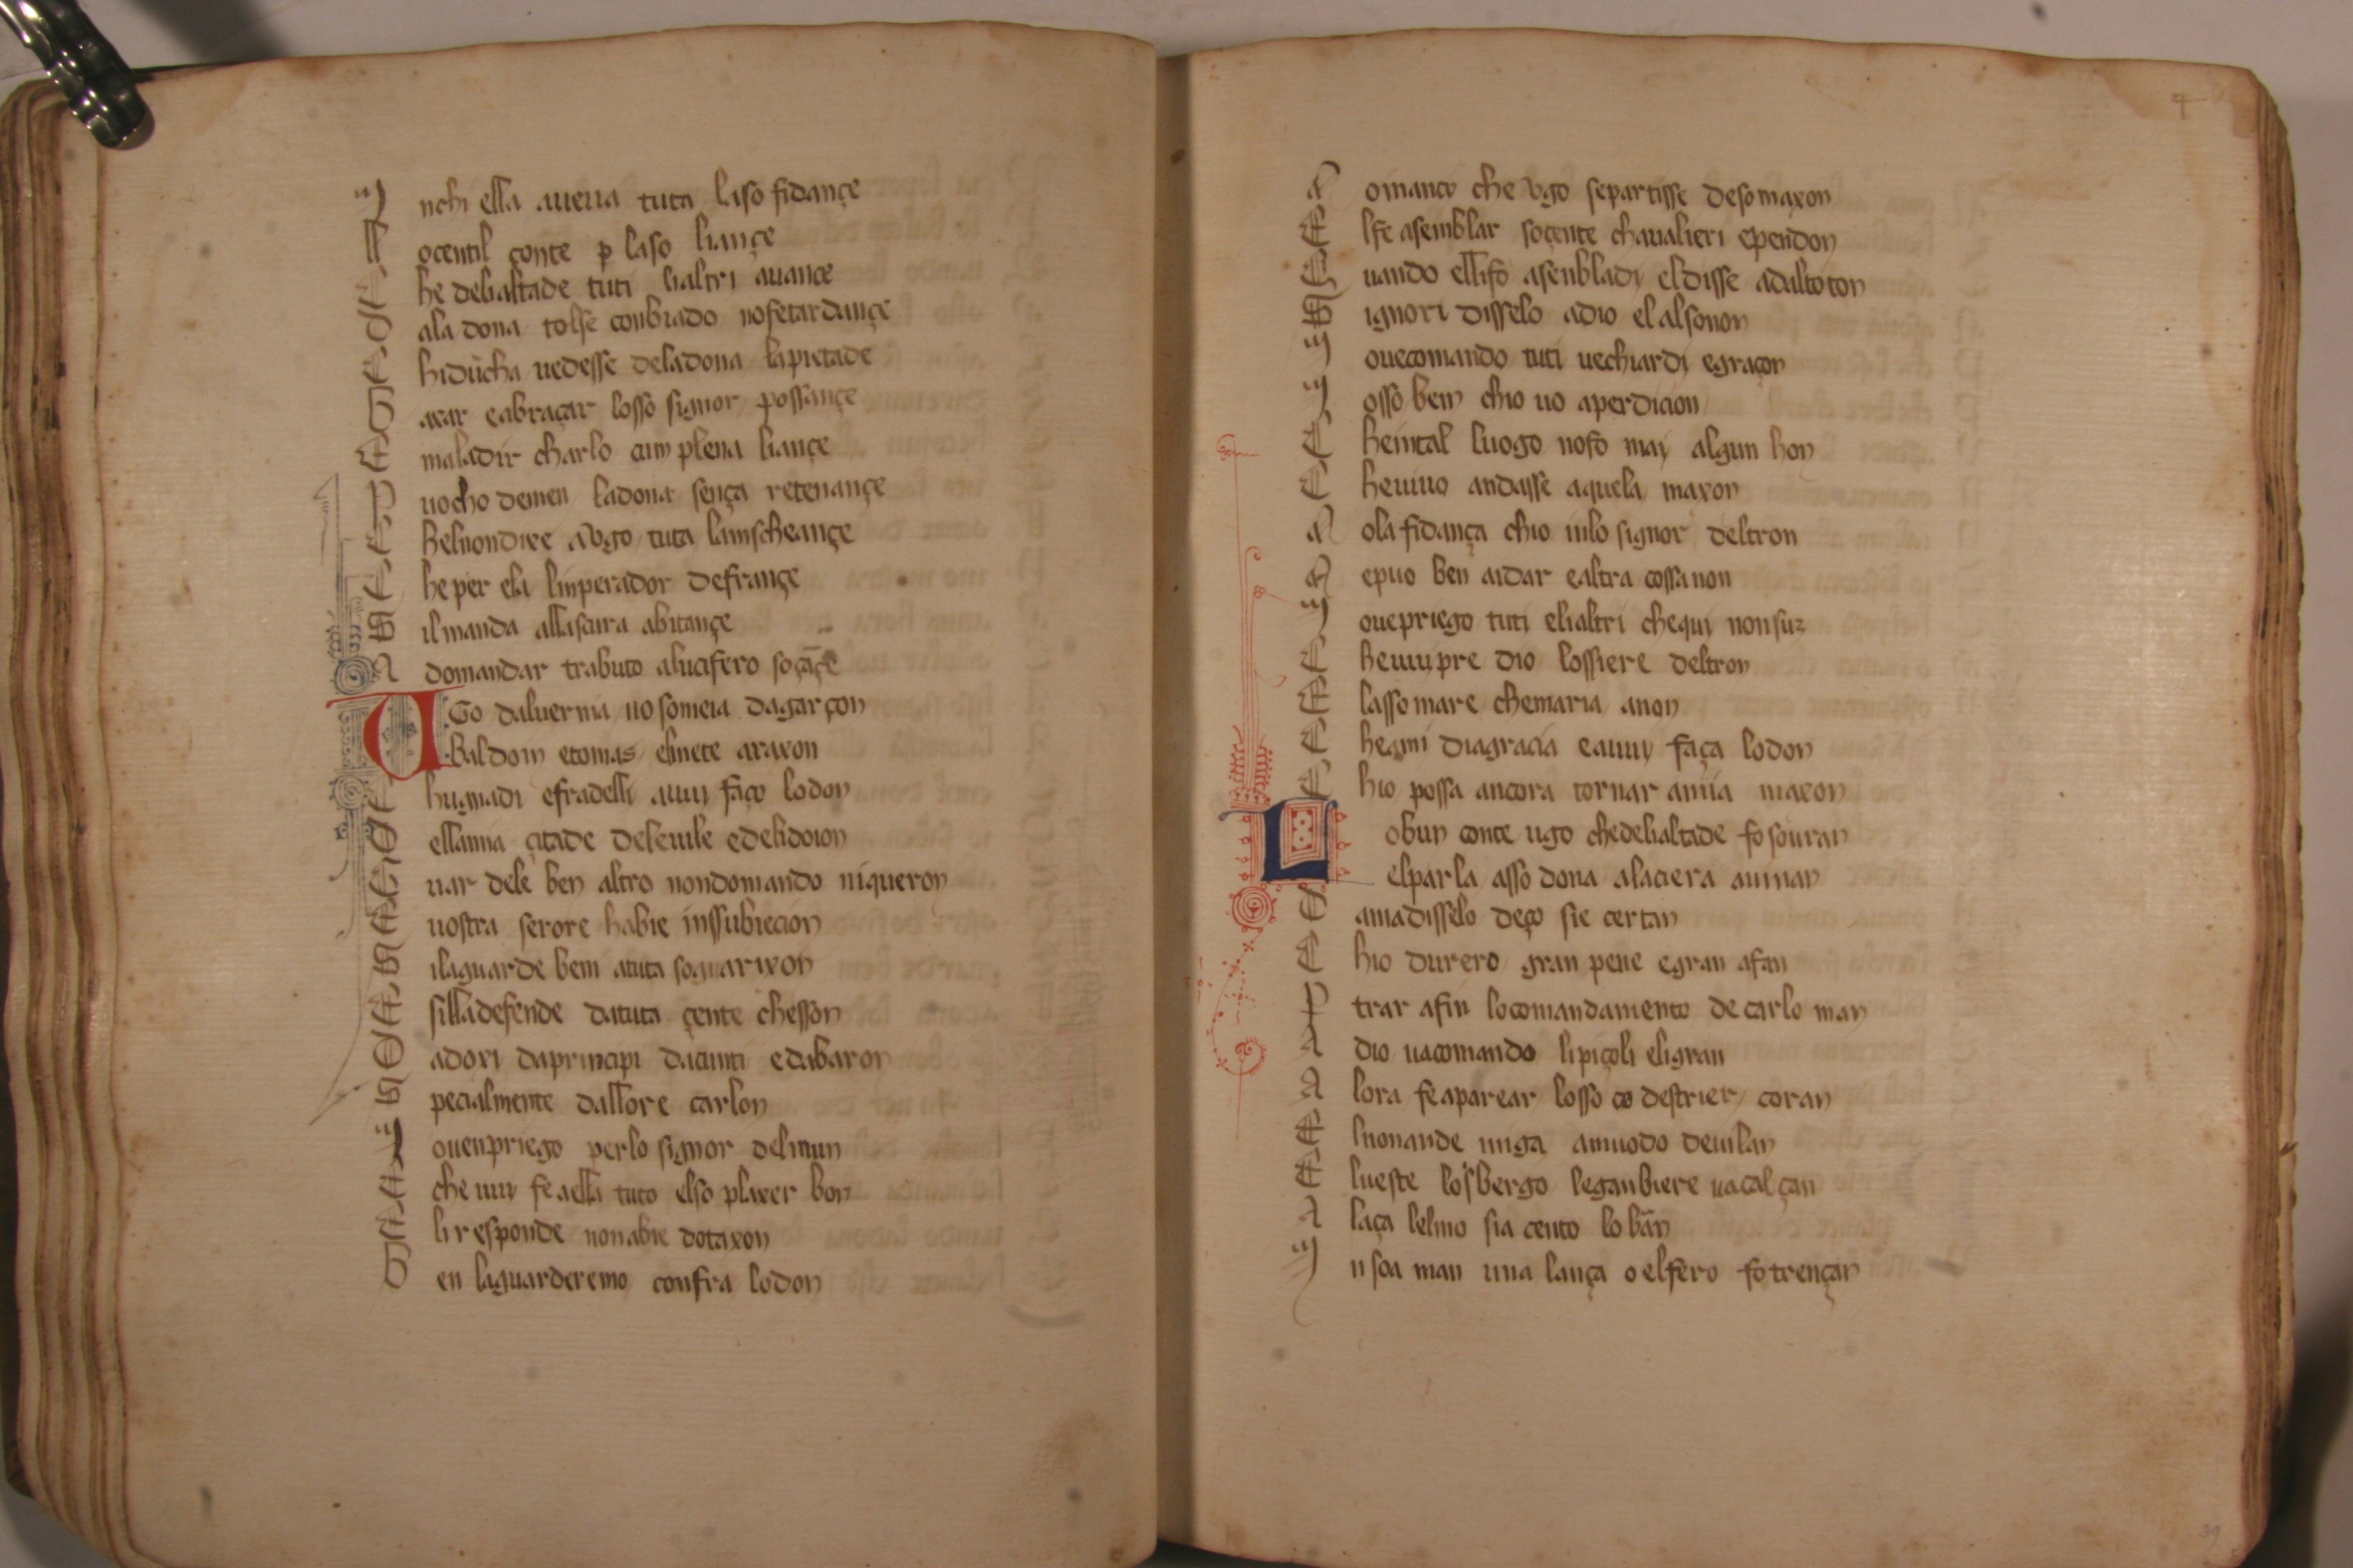 I nchi ella auera tuta laso fidançe
ll oçentil conte p laso liançe
C he deliastade tuti lialtri auance
D ala dona tolse conbiado nofetardançe
C hiducha uedesse deladona lapietade
B axar eabraçar losso signor possançe
E maladir charlo cum plena liançe
P uocho demen ladona sença retenançe
C helnondixe a Vgo tuta lamscheançe
C he per ela linperador defrançe
S il manda allascura abitançe
A domandar trabuto alucifero soçãçe
V Go daluernia no someia dagarçon
Baldoin etomas elmete axaxon
C hugnadi efradelli auui faço lodon
D ellamia çitade deseuile edelidoion
G uar dele ben altro nondomando niqueron
E uostra serore habie inssubiecion
S ilaguarde bem atuta soguarixon
E silladefende datuta çente chesson
D adori daprincipi dacunti edabaron
S pecialmente dallore carlon
I ouenpriego perlo signor delmun
E che uuy fe aella tuto elso plaxer bon
E li responde nonabie dotaxon
B en laguarderemo confra lodon
N omanco che Vgo separtisse desomaxon
E lfe asemblar soçente chaualieri ependon
Q uando ellifo asenbladi eldisse adaltoton
S ignori disselo adio elalsonon
I ouecomando tuti uechiardi egraçon
I osso bem chio uo aperdicion
C heintal luogo nofo may algun hon
C heuiuo andasse aquela maxon
M ola fidança chio inlo signor deltron
M epuo ben aidar ealtra cossanon
I ouepriego tuti elialtri chequi nonsuz
C heuuypre dio lossiere deltron
E lassomare chemaria anon
C heami diagracia eauuy faça lodon
C hio possa ancora tornar amia maxon
L obun conte ugo chedeliastade fo souran
elparla asso dona alaciera auman
D amadisselo deço sie certan
C hio durero gran pene egran afan
P trar afin locomandamento de carlo man
A dio uacomando lipiçoli eligran
A lora feaparear losso co destrier coran
E lnonande miga amuodo deuilan
E lueste losbergo leganbiere uacalçan
A laça lelmo sia cento lo bãn
I n soa man una lança oelfero fo trençan
39